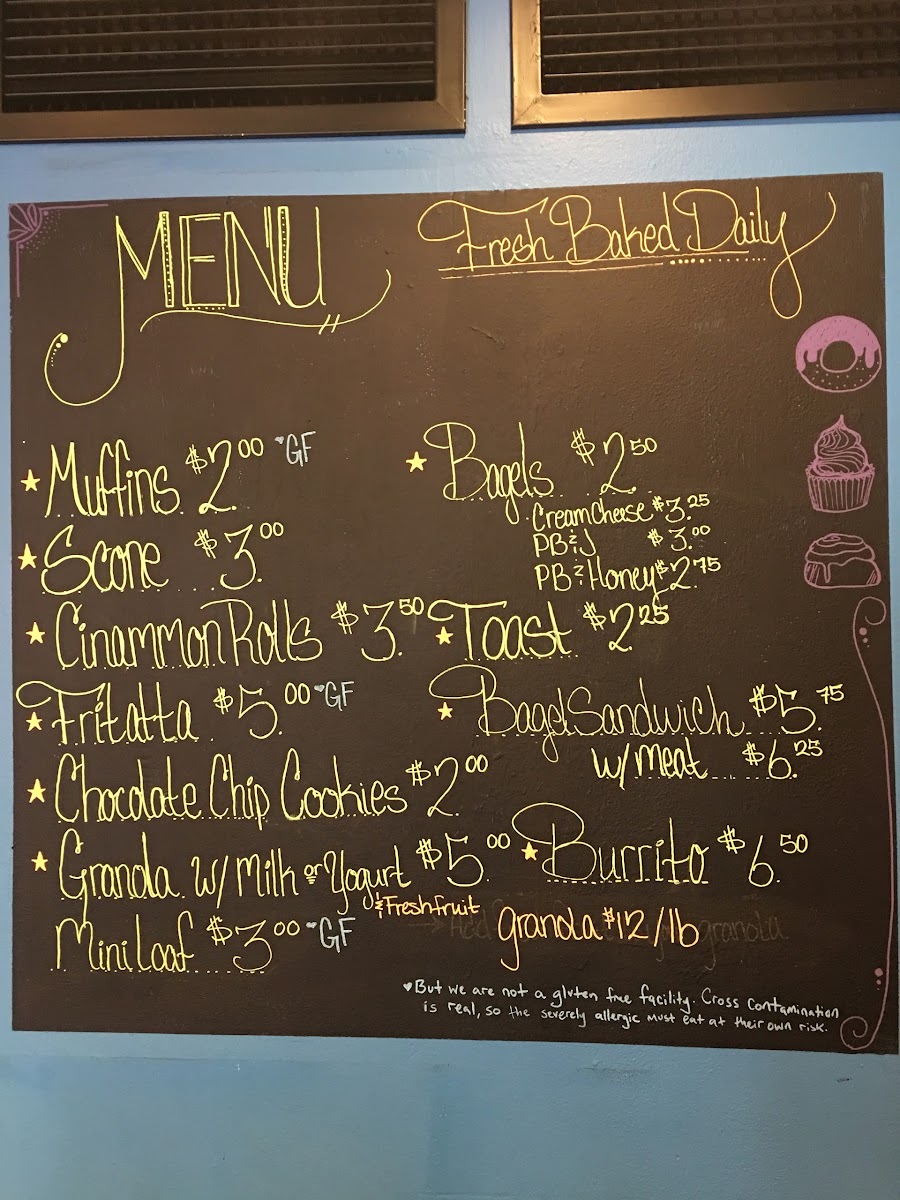 MENU
Fresh Baked Daily
Muffins $2.00 *GF
Scone $3.00
Cinammon Rolls $3.50
Fritatta $5.00 *GF
Chocolate Chip Cookies $2.00
Granola w/ Milk or Yogurt $5.00
& Fresh fruit
Mini Loaf $3.00 *GF
Bagels $2.50
Cream Cheese $3.25
PB & J $3.00
PB & Honey $2.75
Toast $2.25
Bagel Sandwich $5.75
w/ meat $6.25
Burrito $6.50
granola $12/lb
♥But we are not a gluten free facility. Cross contamination
is real, so the severely allergic must eat at their own risk.